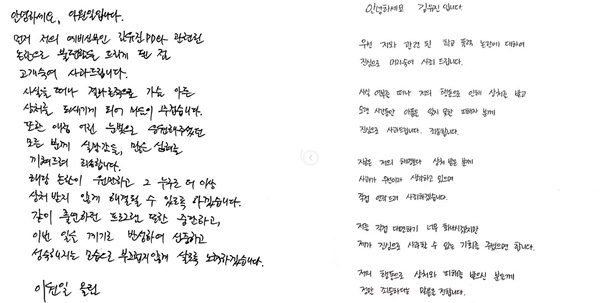 안녕하세요, 이원일입니다.
먼저 저의 예비신부인 김유진 PD와 관련된
논란으로 불편함을 드리게 된 점
고개숙여 사과드립니다.
사실을 떠나 결과적으로 가슴 아픈
상처를 되새기게 되어 마음이 무겁습니다.
또한 애정 어린 눈빛으로 응원해주셨던
모든 분께 실망감을, 많은 심려를
끼쳐드려 죄송합니다.
해당 논란이 원만하고 그 누구도 더 이상
상처 받지 않게 해결될 수 있도록 하겠습니다.
같이 출연하던 프로그램 또한 중단하고,
이번 일을 계기로 반성하여 신중하고
성숙해지는 모습으로 부끄럽지않게 살도록 노력하겠습니다.
이원일 올림
안녕하세요 김유진입니다
우선 저와 관련된 학교 폭력 논란에 대하여
진심으로 머리숙여 사죄 드립니다.
사실 여부를 떠나 저의 행동으로 인해 상처를 받고
오랜 시간동안 아픔을 잊지 못한 피해자 분께
진심으로 사과드립니다. 죄송합니다.
지금은 저의 해명보다 상처 받은 분께
사과가 우선이라 생각하고 있으며
직접 연락드려 사죄하겠습니다.
저를 직접 대면하기 너무 화나시겠지만
제가 진심으로 사과할 수 있는 기회를 주셨으면 합니다.
저의 행동으로 상처와 피해를 받으신 분들께
정말 죄송하다는 말씀을 전합니다.